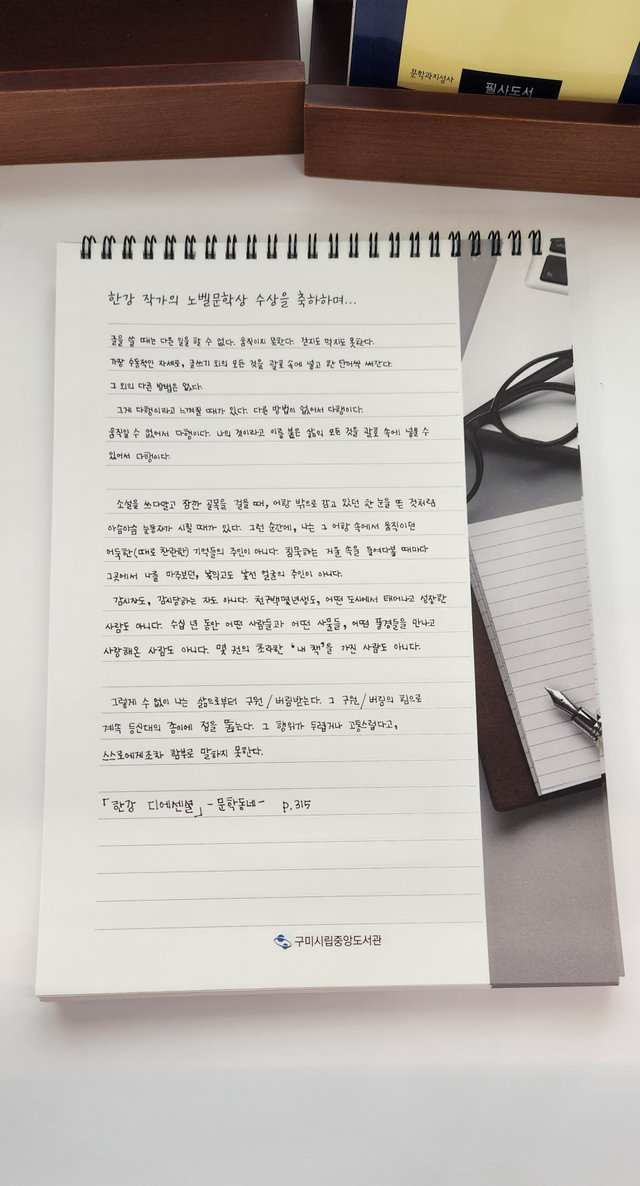 문학과지성사
필사도서
한강 작가의 노벨문학상 수상을 축하하며...
글을 쓸 때는 다른 일을 할 수 없다. 움직이지 못한다. 걷지도 먹지도 못한다.
가장 수동적인 자세로, 글쓰기 외의 모든 것을 괄호 속에 넣고 한 단어씩 써간다.
그 외의 다른 방법은 없다.
그게 다행이라고 느껴질 때가 있다. 다른 방법이 없어서 다행이다.
움직일 수 없어서 다행이다. 나의 것이라고 이름 붙은 삶의 모든 것을 괄호 속에 넣을 수
있어서 다행이다.
소설을 쓰다말고 잠깐 골목을 걸을 때, 어항 밖으로 감고 있던 한 눈을 뜬 것처럼
아슴아슴 눈동자가 시릴 때가 있다. 그런 순간에, 나는 그 어항 속에서 움직이던
어둑한(때로 찬란한) 기억들의 주인이 아니다. 침묵하는 거울 속을 들여다볼 때마다
그곳에서 나를 마주보던, 낯익고도 낯선 얼굴의 주인이 아니다.
감시자도, 감시당하는 자도 아니다. 천구백몇년생도, 어떤 도시에서 태어나고 성장한
사람도 아니다. 수십 년 동안 어떤 사람들과 어떤 사물들, 어떤 풍경들을 만나고
사랑해온 사람도 아니다. 몇 권의 초라한 '내 책'을 가진 사람도 아니다.
그렇게 수 없이 나는 삶으로부터 구원/버림받는다. 그 구원/버림의 힘으로
계속 등신대의 종이에 점을 뚫는다. 그 행위가 두렵거나 고통스럽다고,
스스로에게조차 함부로 말하지 못한다.
「한강 디에센셜」 -문학동네- p.315
구미시립중앙도서관